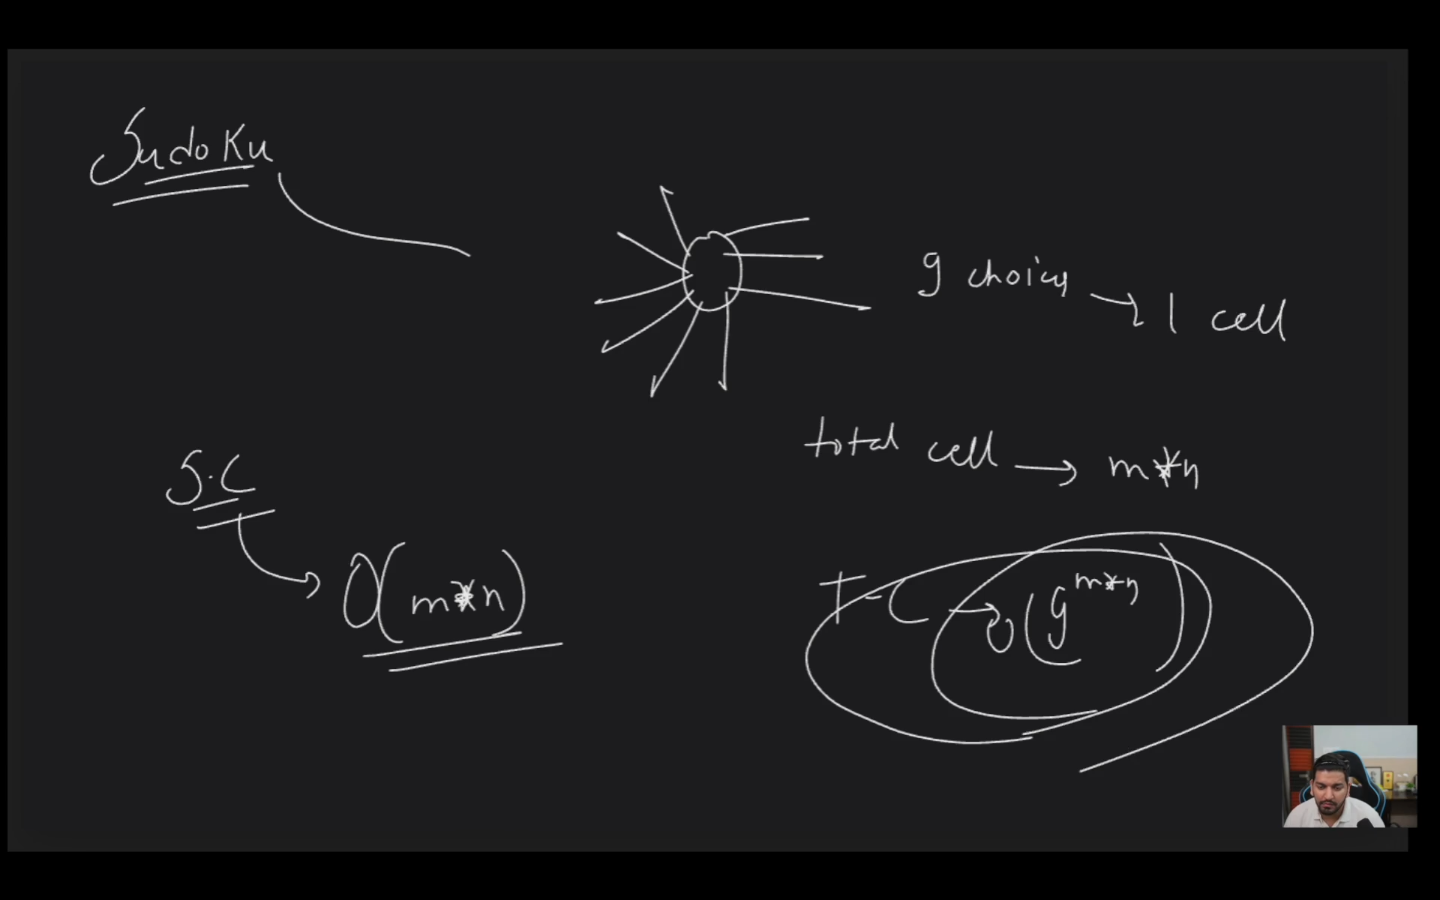 Sudoku
9 choices → 1 cell
total cell → m*n
S.C
→ O(m*n)
T.C → O(9^{m*n})